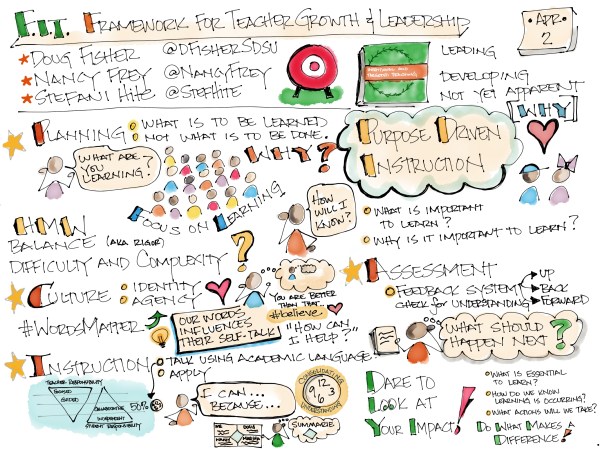 F.I.T. FRAMEWORK FOR TEACHER GROWTH & LEADERSHIP
APR. 2
DOUG FISHER @DFISHERSDSU
NANCY FREY @NANCYFREY
STEFANI HITE @STEFHITE
LEADING
DEVELOPING
NOT YET APPARENT
PLANNING: WHAT IS TO BE LEARNED
NOT WHAT IS TO BE DONE.
WHAT ARE YOU LEARNING?
WHY?
FOCUS ON LEARNING
PURPOSE DRIVEN
INSTRUCTION
WHY
HOW WILL I KNOW?
WHAT IS IMPORTANT
TO LEARN?
WHY IS IT IMPORTANT TO LEARN?
HMW
BALANCE (AKA RIGOR)
DIFFICULTY AND COMPLEXITY?
CULTURE: IDENTITY
AGENCY
#WORDSMATTER
OUR WORDS
INFLUENCES
THEIR SELF-TALK
YOU ARE BETTER
THAN THAT...
#believe
"HOW CAN
I HELP?"
ASSESSMENT
FEEDBACK SYSTEM
CHECK FOR UNDERSTANDING
UP
BACK
FORWARD
WHAT SHOULD
HAPPEN NEXT?
INSTRUCTION
TALK USING ACADEMIC LANGUAGE
APPLY
TEACHER RESPONSIBILITY
FOCUSED
GUIDED
COLLABORATIVE
INDEPENDENT
STUDENT RESPONSIBILITY
50%
I CAN...
BECAUSE...
12
9 3
6
SUMMARIZE
DARE TO
LOOK AT
YOUR IMPACT!
WHAT IS ESSENTIAL
TO LEARN?
HOW DO WE KNOW
LEARNING IS OCCURRING?
WHAT ACTIONS WILL WE TAKE?
DO WHAT MAKES A
DIFFERENCE!